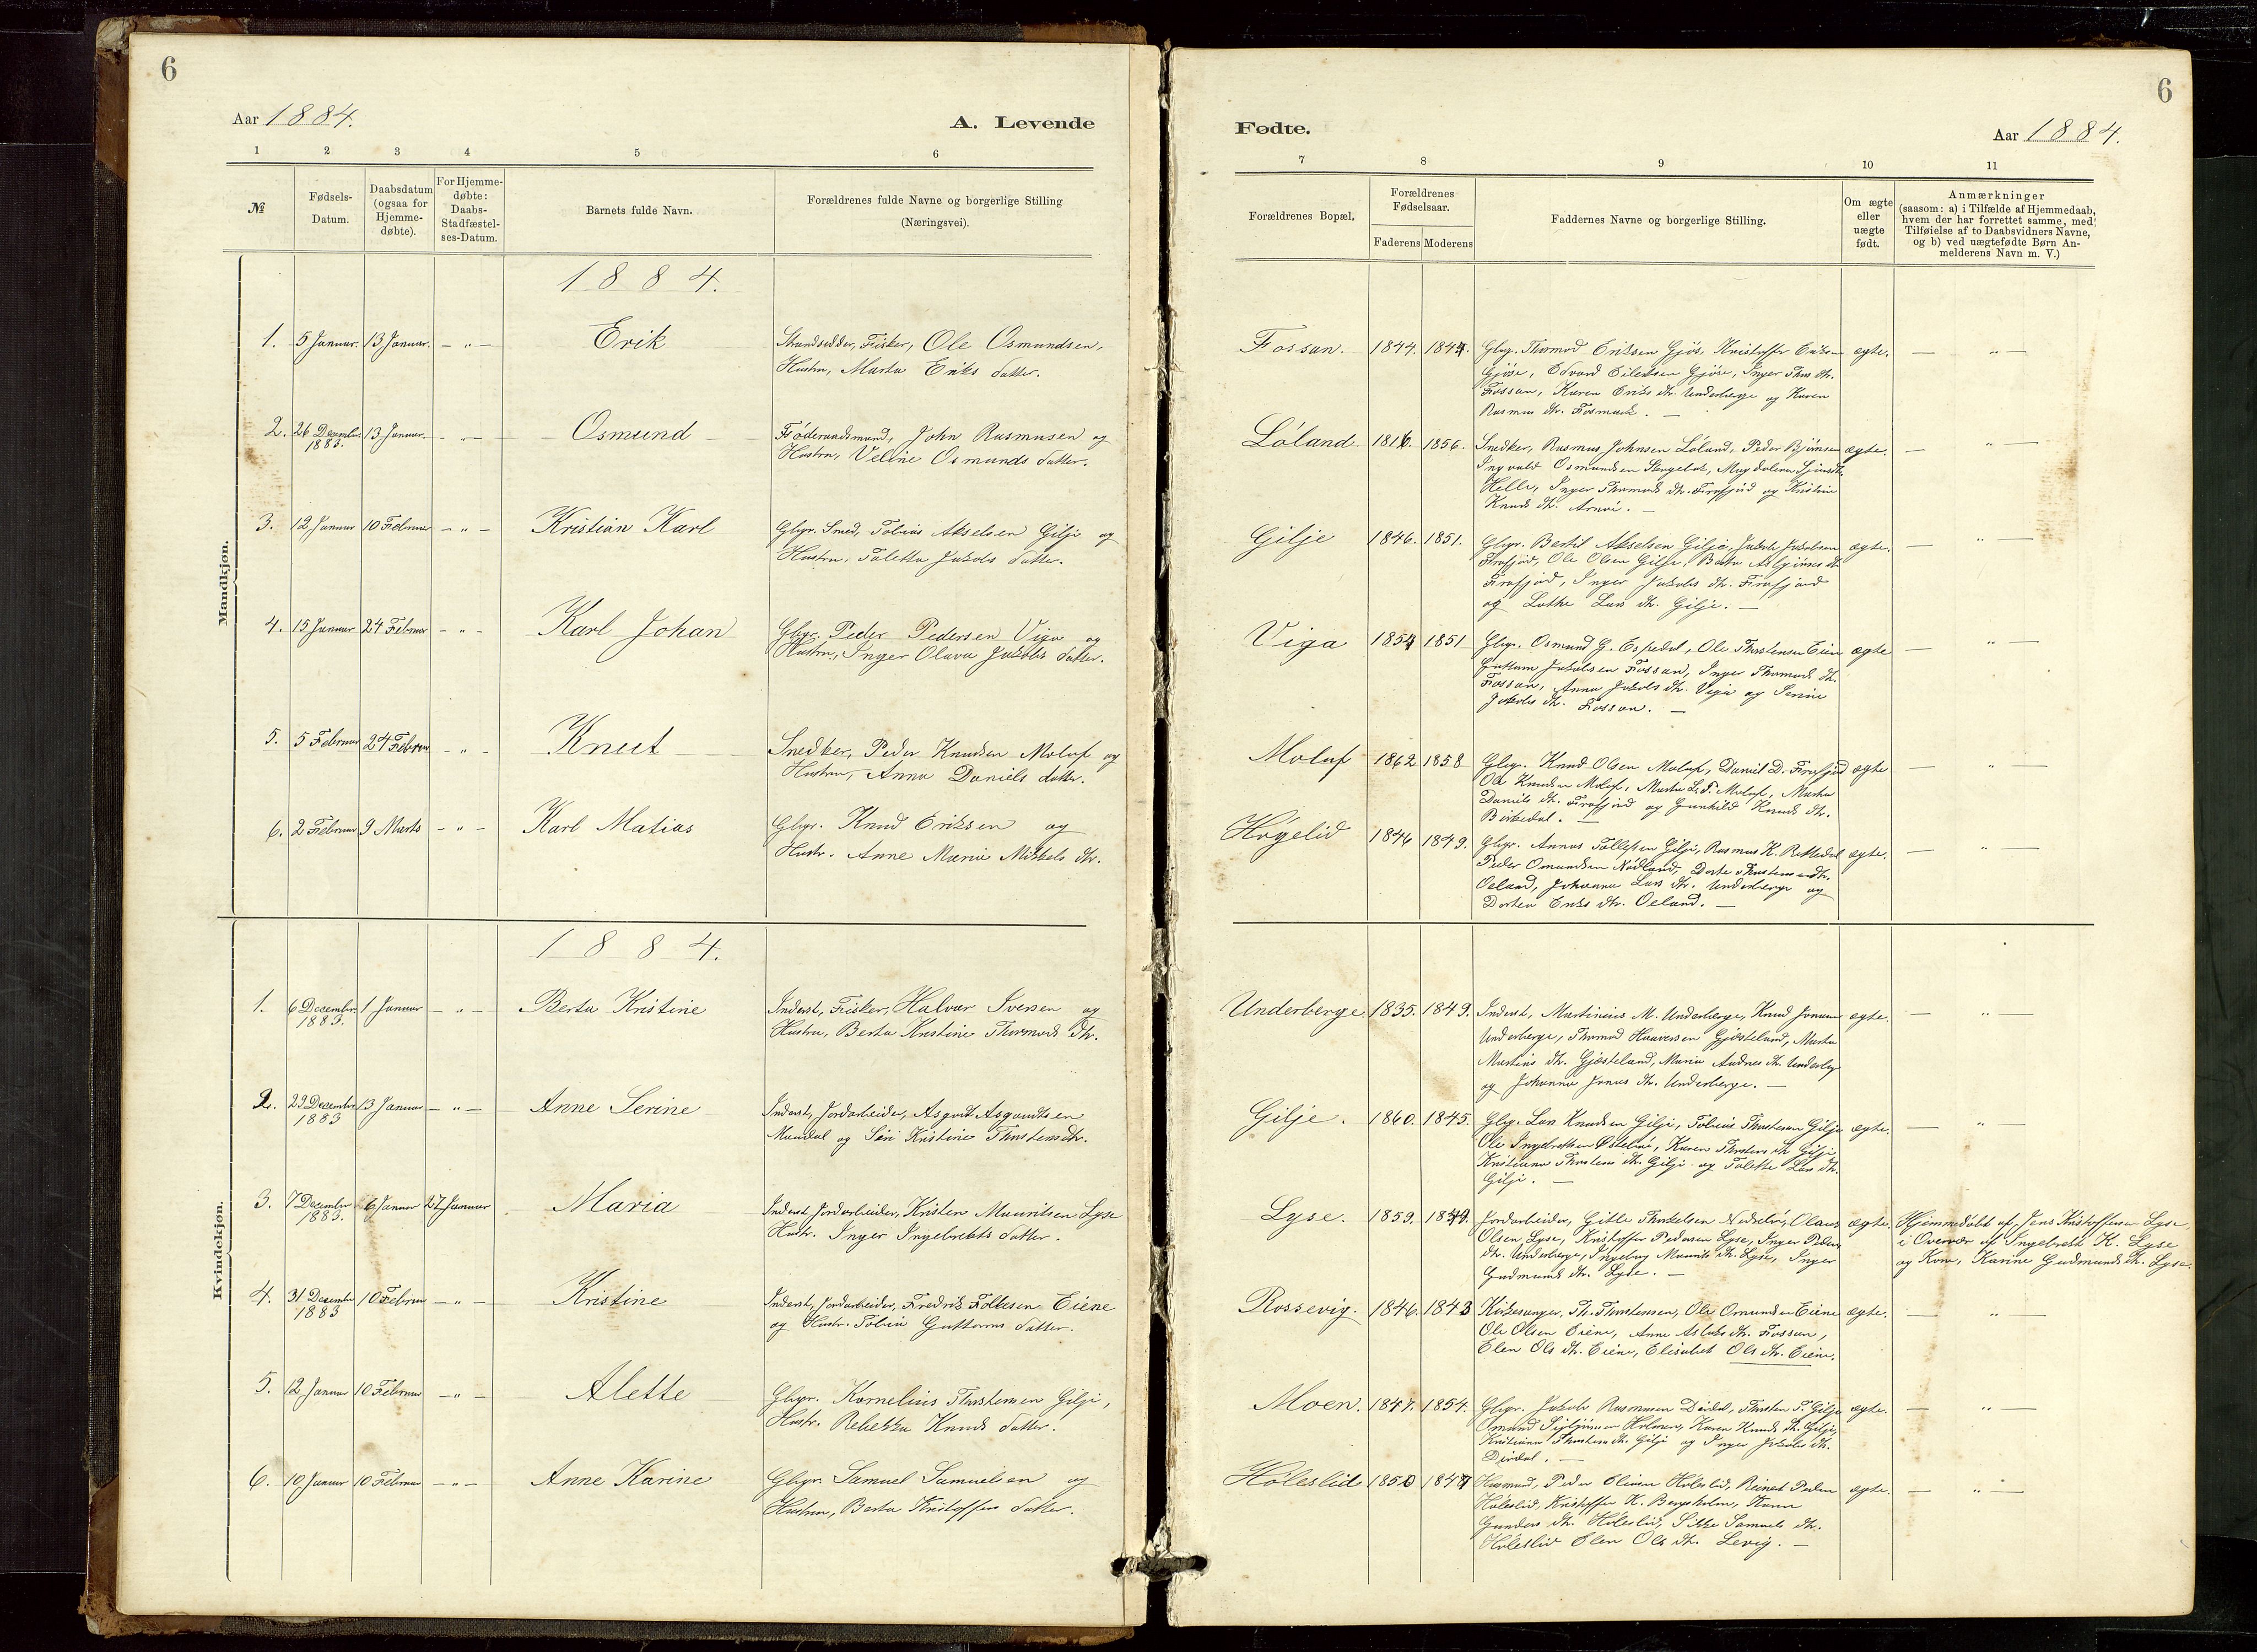 6
Aar 1884.
A. Levende
1 2 3 4 5 6
№
Fødsels-
Datum.
Daabsdatum
(ogsaa for
Hjemme-
døbte).
For Hjemme-
døbte:
Daabs-
Stadfæstel-
ses-Datum.
Barnets fulde Navn.
Forældrenes fulde Navne og borgerlige Stilling
(Næringsvei).
Mandkjøn.
1884.
1. 5 Januar. 13 Januar. - " - Erik Strandsidder, Fisker, Ole Osmundsen,
Hustru, Marta Eriks datter.
2. 26 Decembr. 13 Januar. - " - Osmund Føderaadsmand, John Rasmusen og
1883.
Hustru, Veline Osmunds datter.
3. 12 Januar 10 Februar - " - Kristian Karl Gbgr. Smed, Tobias Akselsen Gilje og
Hustru, Taletta Jakobs datter.
4. 15 Januar 24 Februar - " - Karl Johan Gbgr. Peder Pedersen Viga og
Hustru, Inger Olava Jakobs datter.
5. 5 Februar 24 Februar - " - Knut Snedker, Peder Knudsen Molaf og
Hustru, Anna Daniels datter.
6. 2 Februar 9 Marts - " - Karl Matias Gbgr. Knud Eriksen og
Hustr. Anne Maria Mikkels dtr.
Kvindekjøn.
1884.
1. 6 Decembr. 1 Januar - " - Berta Kristine Inderst, Fisker, Halvar Iversen og
1883.
Hustru, Berta Kristine Thormods dtr.
2. 29 Decembr 13 Januar - " - Anne Serine Inderst, Jordarbeider, Asgout Asgoutsen
1883
Mandal og Siri Kristine Thorstensdtr.
3. 7 Decembr 6 Januar 27 Januar Maria Inderst, Jordarbeider, Kristen Mauritsen Lyse
1883.
Hustr. Inger Ingebrets datter.
4. 31 Decembr 10 Februar - " - Kristine Inderst, Jordarbeider, Fredrik Folkesen Eiene
1883
og Hustr. Tobia Guttorms datter.
5. 12 Januar 10 Februar - " - Alette Gbgr. Kornelius Thorstensen Gilje,
Hustr. Rebekka Knuds datter.
6. 10 Januar 10 Februar - " - Anne Karine Gbgr. Samuel Samuelsen og
Hustru, Berta Kristoffers datter.
6
Fødte.
Aar 1884.
7 8 9 10 11
Forældrenes Bopæl.
Forældrenes
Fødselsaar.
Faderens Moderens
Faddernes Navne og borgerlige Stilling.
Om ægte
eller
uægte
født.
Anmærkninger
(saasom: a) i Tilfælde af Hjemmedaab,
hvem der har forrettet samme, med
Tilføielse af to Daabsvidners Navne,
og b) ved uægtefødte Børn An-
melderens Navn m. V.)
Fossan. 1844. 1844. Gbgr. Thormod Eriksen Gjøse, Kristoffer Eriksen ægte. - " -
Gjøse, Edvard Eilertsen Gjøse, Inger Thors dtr.
Fossan, Karen Eriks dtr. Underberge og Karen
Rasmus dtr. Fosmark. -
Løland. 1816. 1856. Snedker, Rasmus Johnsen Løland, Peder Bjørnsen ægte. - " -
Ingvald Osmundsen Magdalena
Helle, Inger Thormods dtr. Frafjord og Kristine
Knuds dtr. -
Gilje 1846. 1851. Gbgr. Bertil Akselsen Gilje, Jakob Jakobsen ægte. - " -
Frafjord, Ole Olsen Gilje, Berta Asbjørns dtr
Frafjord, Inger Jakobs dtr. Frafjord
og Lars dtr. Gilje. -
Viga 1854 1851 Gbgr. Osmund G. Espedal, Ole Thorstensen Eiene ægte - " -
Guttorm Jakobsen Fossan, Inger Thormods dtr.
Fossan, Anna Jakobs dtr. Viga og Serine
Jakobs dtr. Fossan. -
Molaf 1862 1858 Gbgr. Knud Olsen Molaf, Daniel D. Frafjord ægte - " -
Ole Knudsen Molaf, Marta Molaf, Marta
Daniels dtr. Frafjord og Gunhild Knuds dtr.
Birkedal. -
Høgelid 1846 1849. Gbgr. Annas Tollefsen Gilje, Rasmus K. ægte. - " -
Peder Omundsen Nødland, Dorte Thorstensdtr.
Oeland, Johanna Lars dtr. Underberge og
Dortea Eriks dtr. Oeland. -
Underberge. 1835. 1849. Inderst, Martinius M. Underberge, Knud Jonasen ægte. - " -
Underberge, Thormod Haaversen Gjesteland, Marta
Martins dtr. Gjesteland, Maria Andreas dtr. Underberge
og Johanna Jonas dtr. Underberge. -
Gilje. 1860. 1845. Gbgr. Lars Knudsen Gilje, Tobias Thorstensen Gilje ægte. - " -
Ole Ingebretsen Østebø, Karen Thorstens dtr Gilje,
Kristiana Thorstens dtr. Gilje og Talette Lars dtr.
Gilje. -
Lyse. 1859. 1849. Jordarbeider, Gitle Thorkelsen Nedrebø, Olaus ægte. Hjemmedøbt af Jens Kristoffersen Lyse,
Olsen Lyse, Kristoffer Pedersen Lyse, Inger Peders i Overvær af Ingebret K. Lyse
dtr. Underberge, Ingeborg Maurits dtr. Lyse, Inger og Kone, Karine Gudmunds dtr. Lyse.
Gudmunds dtr. Lyse. -
Rossevig. 1846. 1843 Kirkesanger, Th. Thorstensen, Ole Omundsen Eiene ægte. - " -
Ole Olsen Eiene, Anne Aslaks dtr. Fossan,
Elen Ols dtr. Eiene, Elisabet Ols dtr. Eiene.
Moen. 1847. 1854. Gbgr. Jakob Rasmussen Dirdal, Thorsten T. Gilje ægte. - " -
Omund Holmen, Karen Knuds dtr. Gilje,
Kristiana Thorstens dtr. Gilje og Inger Jakobs dtr.
Dirdal. -
Høleslid 1850 1847 Husmand, Peder Høleslid, Reinert Peder ægte. - " -
Høleslid, Kristoffer K. Bergsholm, Karen
Gunders dtr. Høleslid, Sille Samuels dtr.
Høleslid Elen Ols dtr. Levig. -